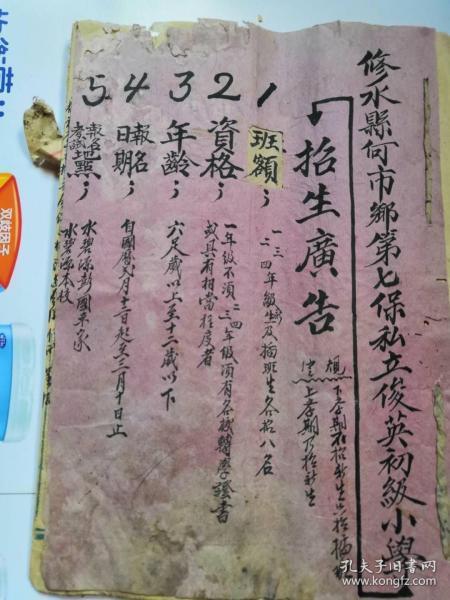 修水縣何市鄉第七保私立俊英初級小學
招生廣告
規定
下學期不招新生只招插
上學期乃招新生
1 班額；
一二三四年級新生及插班生各招八名
2 資格；
一年級不須二三四年級須有各校轉學證書
或具有相當程度者
3 年齡；
六足歲以上至十二歲以下
4 報名日期；
自國曆弍月十一日起至三月十日止
5 報名考試地點；
水碧源彭國東家
水碧源本校
双歧因子
孔夫子旧书网
www.kongfz.com